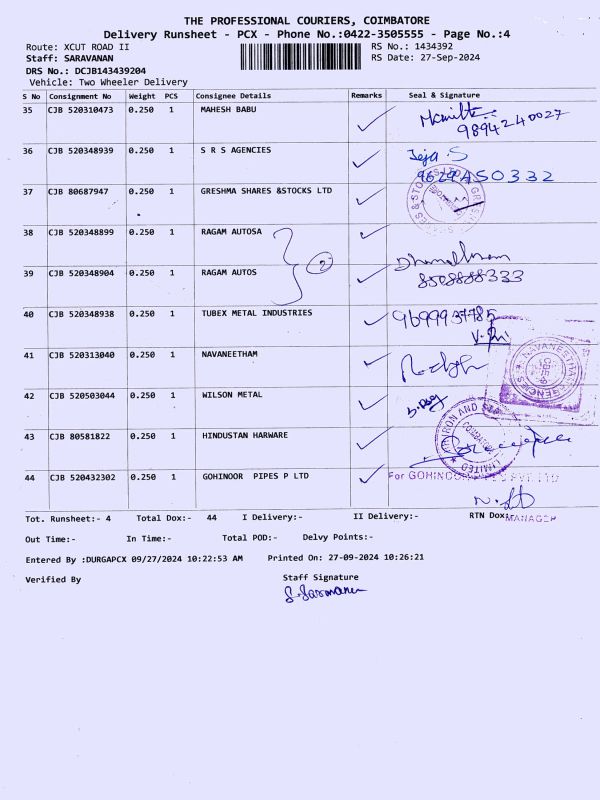 THE PROFESSIONAL COURIERS, COIMBATORE
Delivery Runsheet - PCX - Phone No.:0422-3505555 - Page No.:4
Route: XCUT ROAD II RS No.: 1434392
Staff: SARAVANAN RS Date: 27-Sep-2024
DRS No.: DCJB143439204
Vehicle: Two Wheeler Delivery
S No Consignment No Weight PCS Consignee Details Remarks Seal & Signature
35 CJB 520310473 0.250 1 MAHESH BABU
9894240027
36 CJB 520348939 0.250 1 S R S AGENCIES Teja.S
37 CJB 80687947 0.250 1 GRESHMA SHARES &STOCKS LTD
38 CJB 520348899 0.250 1 RAGAM AUTOSA
2
39 CJB 520348904 0.250 1 RAGAM AUTOS 8508888333
40 CJB 520348938 0.250 1 TUBEX METAL INDUSTRIES
41 CJB 520313040 0.250 1 NAVANEETHAM
42 CJB 520503044 0.250 1 WILSON METAL
43 CJB 80581822 0.250 1 HINDUSTAN HARWARE
44 CJB 520432302 0.250 1 GOHINOOR PIPES P LTD For GOHINOOR
MANAGER
Tot. Runsheet:- 4 Total Dox:- 44 I Delivery:- II Delivery:- RTN Dox:
Out Time:- In Time:- Total POD:- Delvy Points:-
Entered By :DURGAPCX 09/27/2024 10:22:53 AM Printed On: 27-09-2024 10:26:21
Verified By Staff Signature